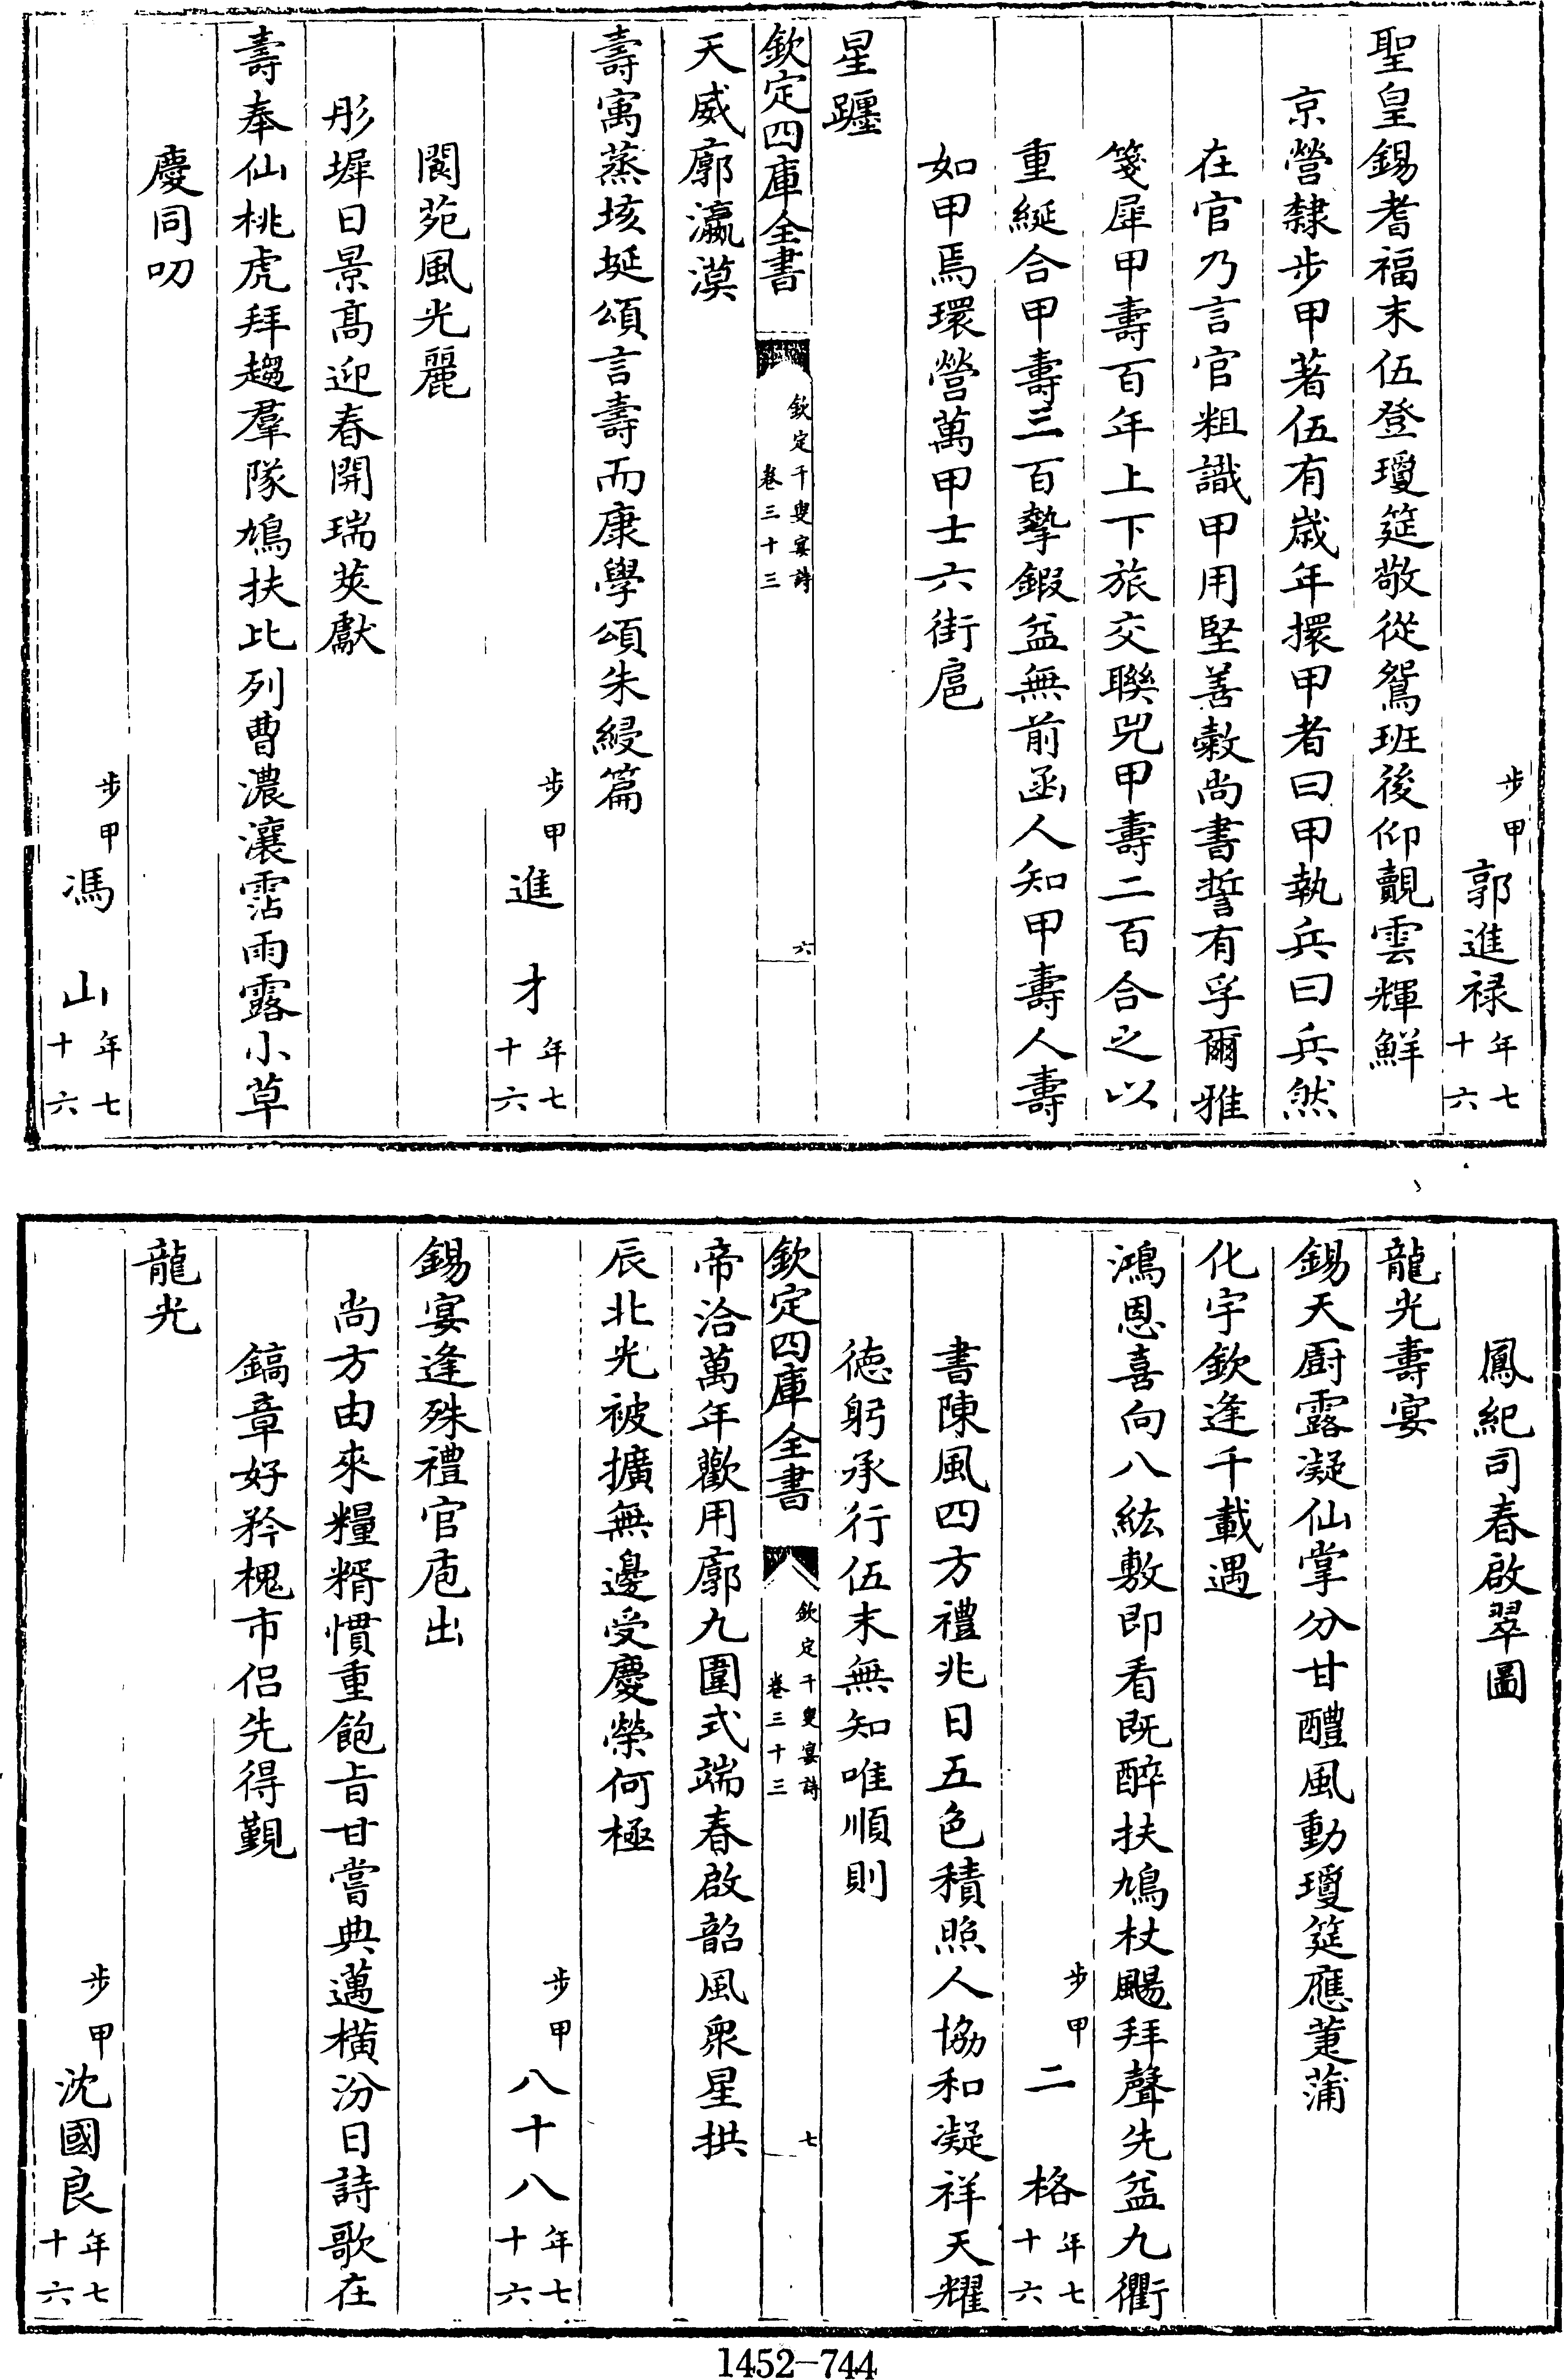 步甲郭進祿年七十六
聖皇錫耆福末伍登瓊筵敬從鴛班後仰覿雲輝鮮
京營隸步甲著伍有歲年擐甲者曰甲執兵曰兵然
在官乃言官粗識甲用堅善敹尚書誓有孚爾雅
箋犀甲壽百年上下旅交聯兕甲壽二百合之以
重綖合甲壽三百摯鍜盆無前函人知甲壽人壽
如甲焉環營萬甲士六街扈
星躔
欽定四庫全書
欽定千叟宴詩
卷三十三
六
天威廓瀛漠
壽寓蒸垓埏頌言壽而康學頌朱綅篇
步甲進才年七十六
閬苑風光麗
彤墀日景高迎春開瑞莢獻
壽奉仙桃虎拜趨羣隊鳩扶比列曹濃瀼霑雨露小草
慶同叨
步甲馮山年七十六
鳳紀司春啟翠圖
龍光壽宴
錫天廚露凝仙掌分甘醴風動瓊筵應萐蒲
化宇欽逢千載遇
鴻恩喜向八紘敷即看既醉扶鳩杖颺拜聲先盆九衢
步甲二格年七十六
書陳風四方禮兆日五色積照人協和凝祥天耀
德躬承行伍末無知唯順則
欽定四庫全書
欽定千叟宴詩
卷三十三
七
帝洽萬年歡用廓九圍式端春啟韶風衆星拱
辰北光被擴無邊受慶榮何極
步甲八十八年七十六
錫宴逢殊禮官庖出
尚方由來糧糈慣重飽旨甘嘗典邁橫汾日詩歌在
鎬章好矜槐市侶先得覲
龍光
步甲沈國良年七十六
1452-744